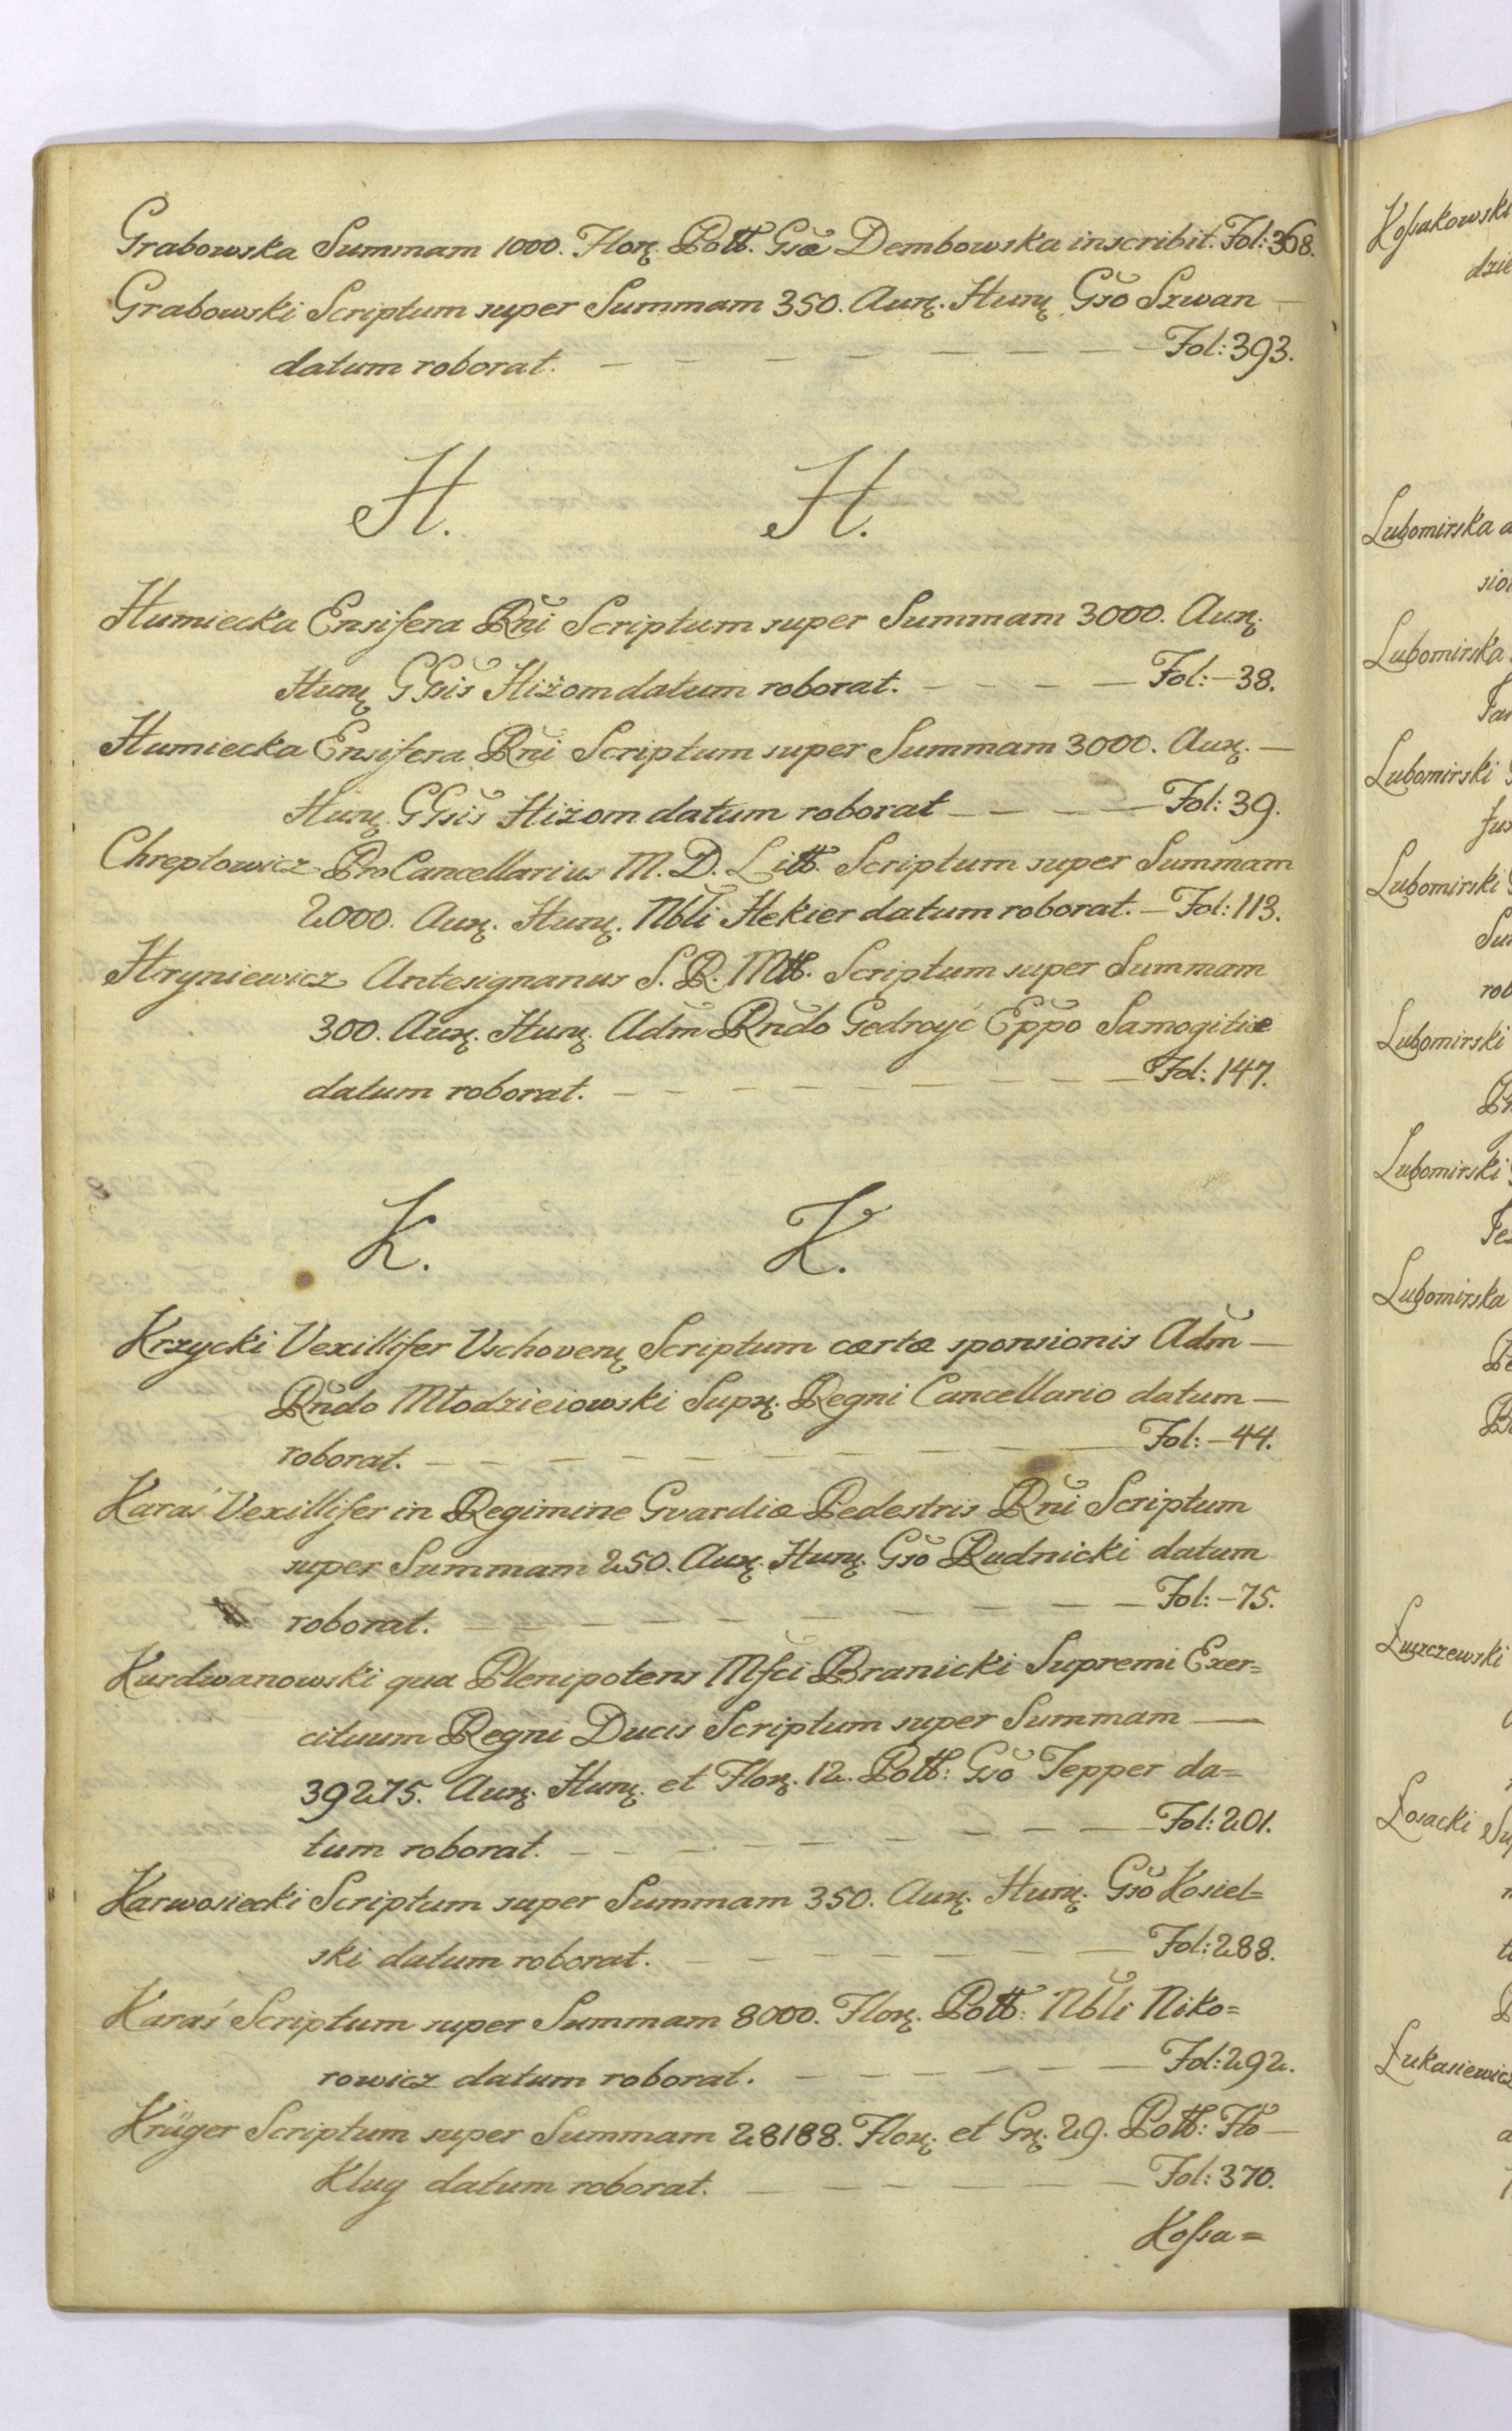 Grabowska Summam 1000. Flor. Poll. Gsæ Dembowska inscribit. Fol: 368.
Grabowski Scriptum super Summam 350. Aur. Hung. Gso Szwan
datum roborat. Fol: 393.
H. H.
Humiecka Ensifera Rni Scriptum super Summam 3000. Aur.
Hung. GGsis Hiżom datum roborat. Fol: 38.
Humiecka Ensifera Rni Scriptum super Summam 3000. Aur.
Hung. GGsis Hiżom datum roborat Fol: 39.
Chreptowicz ProCancellarius M. D. Litt. Scriptum super Summam
2000. Aur. Hung. Nbli Hekier datum roborat. Fol: 113.
Hryniewicz Antesignanus S. R. Mtt. Scriptum super Summam
300. Aur. Hung. Adm Rndo Gedroyć Eppo Samogitiæ
datum roborat. Fol: 147.
K. K.
Krzycki Vexillifer Vschoven. Scriptum cartæ sponsionis Adm
Rndo Młodzieiowski Supr. Regni Cancellario datum
roborat. Fol: 44.
Karaś Vexillifer in Regimine Gvardiæ Pedestris Rni Scriptum
super Summam 250. Aur. Hung. Gso Rudnicki datum
roborat. Fol: 75.
Kurdwanowski qua Plenipotens Mfci Branicki Supremi Exer=
cituum Regni Ducis Scriptum super Summam
39275. Aur. Hung. et Flor. 12. Poll: Gso Tepper da=
tum roborat. Fol: 201.
Karwosiecki Scriptum super Summam 350. Aur. Hung. Gso Kosiel=
ski datum roborat. Fol: 288.
Karaś Scriptum super Summam 8000. Flor. Poll: Nbli Niko=
rowicz datum roborat. Fol: 292.
Krüger Scriptum super Summam 28188. Flor. et Gr. 29. Poll: Hto
Klug datum roborat. Fol: 370.
Kossa=
Kossakowski
dzie
Lubomirska a
sion
Lubomirska
Lubomirski
Lubomirski
rob
Lubomirski
Lubomirski
Lubomirska
Łuszczewski
Łosacki
Łukasiewicz